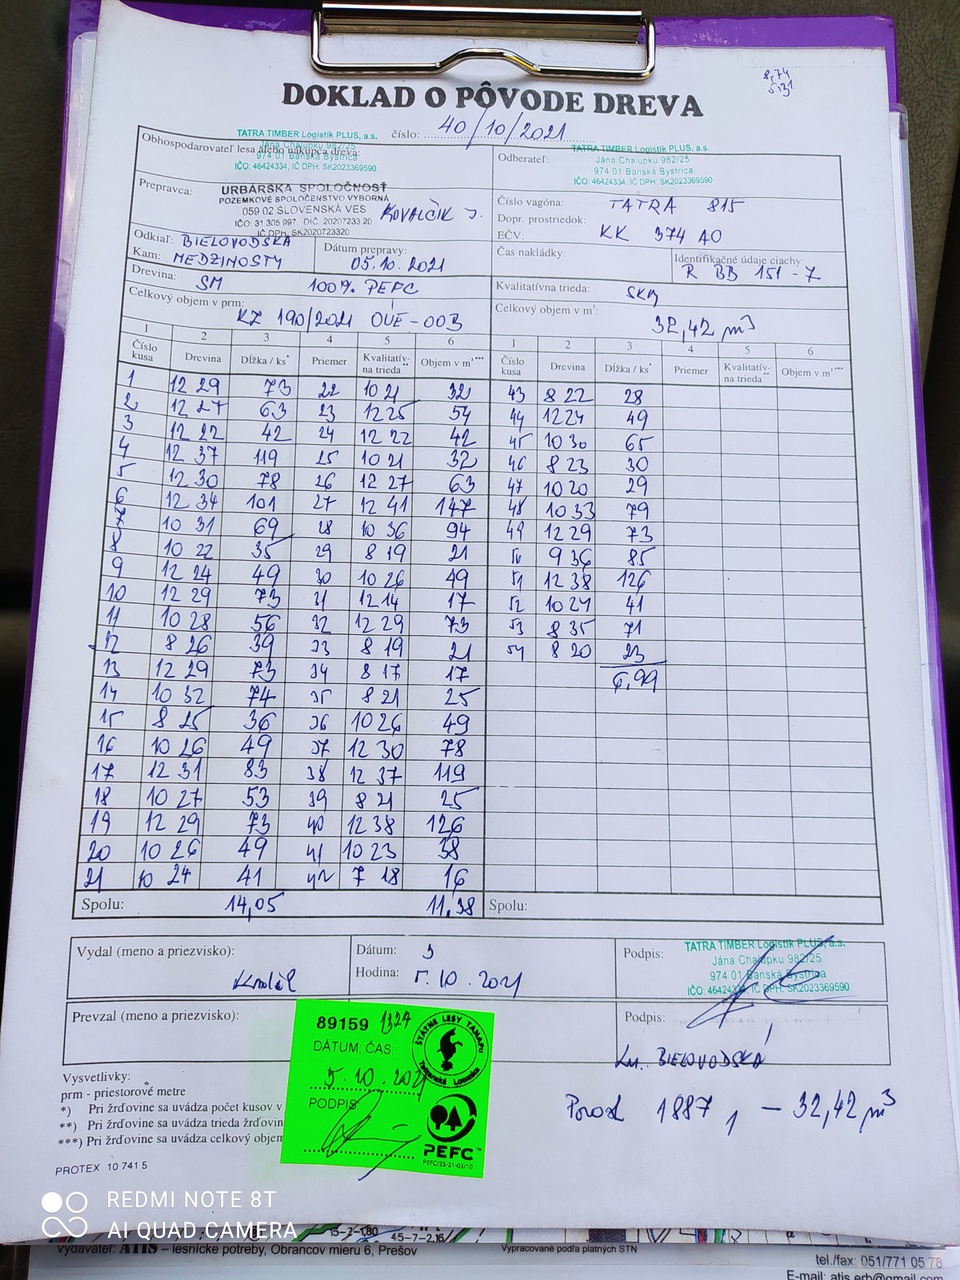 8,74
5,31
DOKLAD O PÔVODE DREVA
číslo: 40/10/2021
Obhospodarovateľ lesa alebo nákupca dreva:
TATRA TIMBER Logistik PLUS, a.s.
Jána Chalupku 982/25
974 01 Banská Bystrica
IČO: 46424334, IČ DPH: SK2023369590
Odberateľ:
TATRA TIMBER Logistik PLUS, a.s.
Jána Chalupku 982/25
974 01 Banská Bystrica
IČO: 46424334, IČ DPH: SK2023369590
Prepravca:
URBÁRSKA SPOLOČNOSŤ
POZEMKOVÉ SPOLOČENSTVO VÝBORNÁ
059 02 SLOVENSKÁ VES
IČO: 31 305 997 DIČ: 2020723320
IČ DPH: SK2020723320
KOVALČÍK J.
Číslo vagóna: TATRA 815
Dopr. prostriedok:
EČV: KK 374 AO
Odkiaľ: BIELOVODSKÁ
Kam: MEDZINOSTY
Dátum prepravy:
05.10.2021
Čas nakládky:
Identifikačné údaje ciachy:
R BB 151-7
Drevina: SM 100% PEFC
Kvalitatívna trieda: SKM
Celkový objem v prm:
KZ 190/2021 OUE-003
Celkový objem v m³:
32,42 m³
1 2 3 4 5 6 1 2 3 4 5 6
Číslo kusa Drevina Dĺžka / ks* Priemer Kvalitatív-na trieda** Objem v m³*** Číslo kusa Drevina Dĺžka / ks* Priemer Kvalitatív-na trieda** Objem v m³***
1 12 29 73 22 10 21 32 43 8 22 28
2 12 27 63 23 12 25 54 44 12 24 49
3 12 22 42 24 12 22 42 45 10 30 65
4 12 37 119 25 10 21 32 46 8 23 30
5 12 30 78 26 12 27 63 47 10 20 29
6 12 34 101 27 12 41 147 48 10 33 79
7 10 31 69 28 10 36 94 49 12 29 73
8 10 22 35 29 8 19 21 50 9 36 85
9 12 24 49 30 10 26 49 51 12 38 126
10 12 29 73 31 12 14 17 52 10 24 41
11 10 28 56 32 12 29 73 53 8 35 71
12 8 26 39 33 8 19 21 54 8 20 23
13 12 29 73 34 8 17 17 6,99
14 10 32 74 35 8 21 25
15 8 25 36 36 10 26 49
16 10 26 49 37 12 30 78
17 12 31 83 38 12 37 119
18 10 27 53 39 8 21 25
19 12 29 73 40 12 38 126
20 10 26 49 41 10 23 38
21 10 24 41 42 7 18 16
Spolu: 14,05 11,38 Spolu:
Vydal (meno a priezvisko):
Dátum: 5
Hodina: 5.10.2021
Podpis:
TATRA TIMBER Logistik PLUS, a.s.
Jána Chalupku 982/25
974 01 Banská Bystrica
IČO: 46424334, IČ DPH: SK2023369590
Prevzal (meno a priezvisko):
Podpis:
89159 1324
DÁTUM, ČAS:
5.10.2021
PODPIS
ŠTÁTNE LESY TANAPU
Tatranská Lomnica
PEFC™
PEFC/23-21-03/10
BIELOVODSKÁ
1887, - 32,42 m³
Vysvetlivky:
prm - priestorové metre
*) Pri žrďovine sa uvádza počet kusov v
**) Pri žrďovine sa uvádza trieda žrďovin
***) Pri žrďovine sa uvádza celkový objem
PROTEX 10 741 5
REDMI NOTE 8T
AI QUAD CAMERA
Vydavateľ: ATIS – lesnícke potreby, Obrancov mieru 6, Prešov
Vypracované podľa platných STN
tel./fax: 051/771 05 78